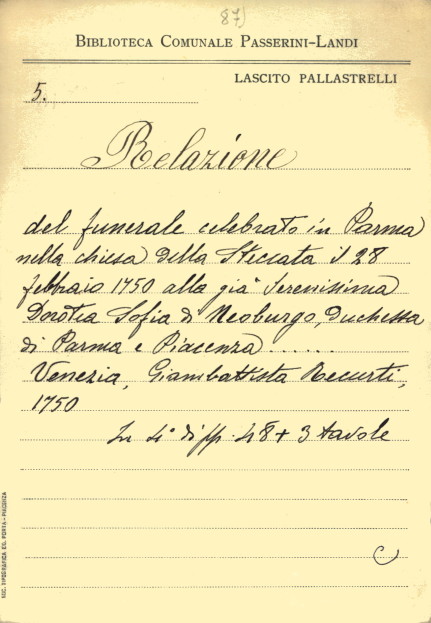 87)
BIBLIOTECA COMUNALE PASSERINI-LANDI
LASCITO PALLASTRELLI
5.
Relazione
del funerale celebrato in Parma
nella chiesa della Steccata il 28
febbraio 1750 alla già Serenissima
Dorotea Sofia di Neoburgo, Duchessa
di Parma e Piacenza......
Venezia, Giambattista Recurti,
1750
In 4° di pp. 48 + 3 tavole
SOC. TIPOGRAFICA ED. PORTA - PIACENZA